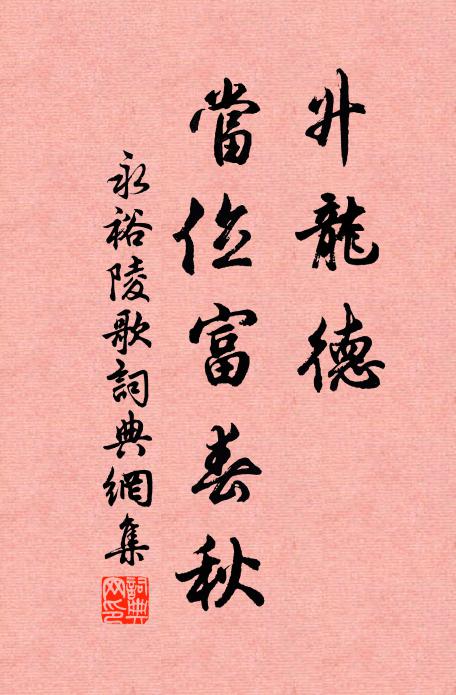 升龍德
當位富春秋
永裕陵歌詞典網集
詞典網印